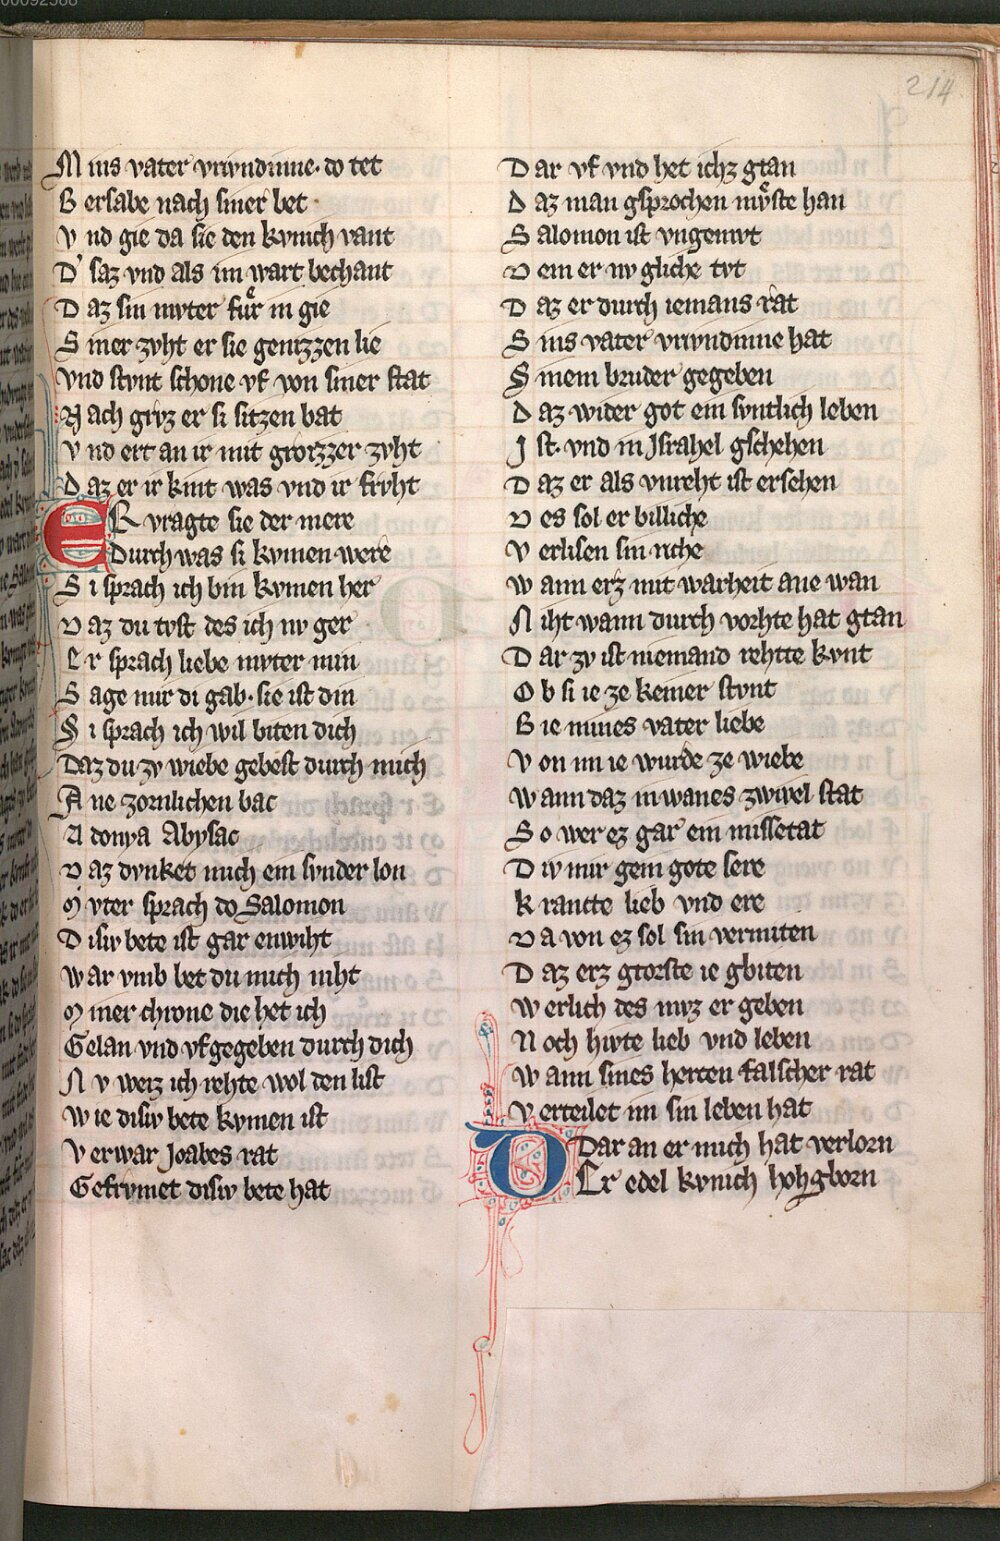 00092588
214
Mins vater vriwndinne · do tet
Bersabe nach siner bet ·
Vnd gie da sie den kvnich vant
D' saz vnd als im wart bechant
Daz sin mvter fuͤr in gie
Siner zvht er sie genizzen lie
vnd stvnt schone vf von siner stat
Nach grvz er si sitzen bat
Vnd ert an ir mit grozzer zvht
Daz er ir kint was vnd ir frvht
ER vragte sie der mere
Durch was si kvmen were
Si sprach ich bin kvmen her
Daz du tvst des ich nv ger
Er sprach liebe mvter min
Sage mir di gab · sie ist din
Si sprach ich wil biten dich
Daz du zv wiebe gebest durch mich
Ane zornlichen bac
Adonya Abysac
Daz dvnket mich ein svnder lon
Mvter sprach do Salomon
Disiv bete ist gar enwiht
War vmb bet du mich niht
Miner chrone die het ich
Gelan vnd vfgegeben durch dich
Nv weiz ich rehte wol den list
Wie disiv bete kvmen ist
Verwar Joabes rat
Gefrvmet disiv bete hat
Dar vf vnd het ichz gtan
Daz man gsprochen mvͤste han
Salomon ist vngemvt
Dem er nv gliche tvt
Daz er durch iemans rat
Sins vater vriwndinne hat
Sinem bruder gegeben
Daz wider got ein svntlich leben
Ist · vnd in Israhel gschehen
Daz er als vnreht ist ersehen
Des sol er billiche
Verlisen sin riche
Wann erz mit warheit ane wan
Niht wann durch vorhte hat gtan
Dar zv ist niemand rehtte kvnt
Ob si ie ze keiner stvnt
Bie mines vater liebe
Von im ie wurde ze wiebe
Wann daz in wanes zwivel stat
So wer ez gar ein missetat
Div mir gein gote sere
Krancte lieb vnd ere
Da von ez sol sin vermiten
Daz erz gtorste ie gbiten
Werlich des mvz er geben
Noch hivte lieb vnd leben
Wann sines hercen falscher rat
Verteilet im sin leben hat
Dar an er mich hat verlorn
DEr edel kvnich hohgborn